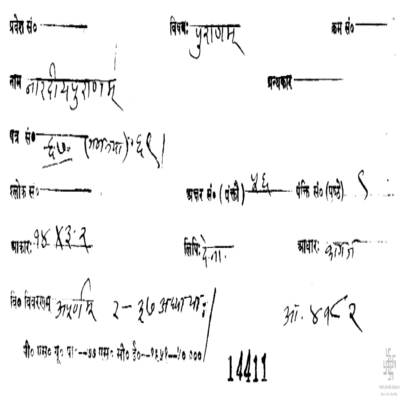 प्रवेश सं० विषयः पुराणम् क्रम सं०
नाम नारदीयपुराणम् ग्रन्थकार
पत्र सं० ६७ (गणनया) ६९
श्लोक सं० अक्षर सं० (पंक्तौ) ५६ पंक्ति सं० (पृष्ठे) ९
आकारः १४ X ३.२ लिपिः दे.ना. आधारः कागज
वि० विवरणम् अपूर्णम् २-३७ अध्यायाः
पी० एस० यू० पी०--७७ एस० सी० ई०--१९५१--५० ०००
14411